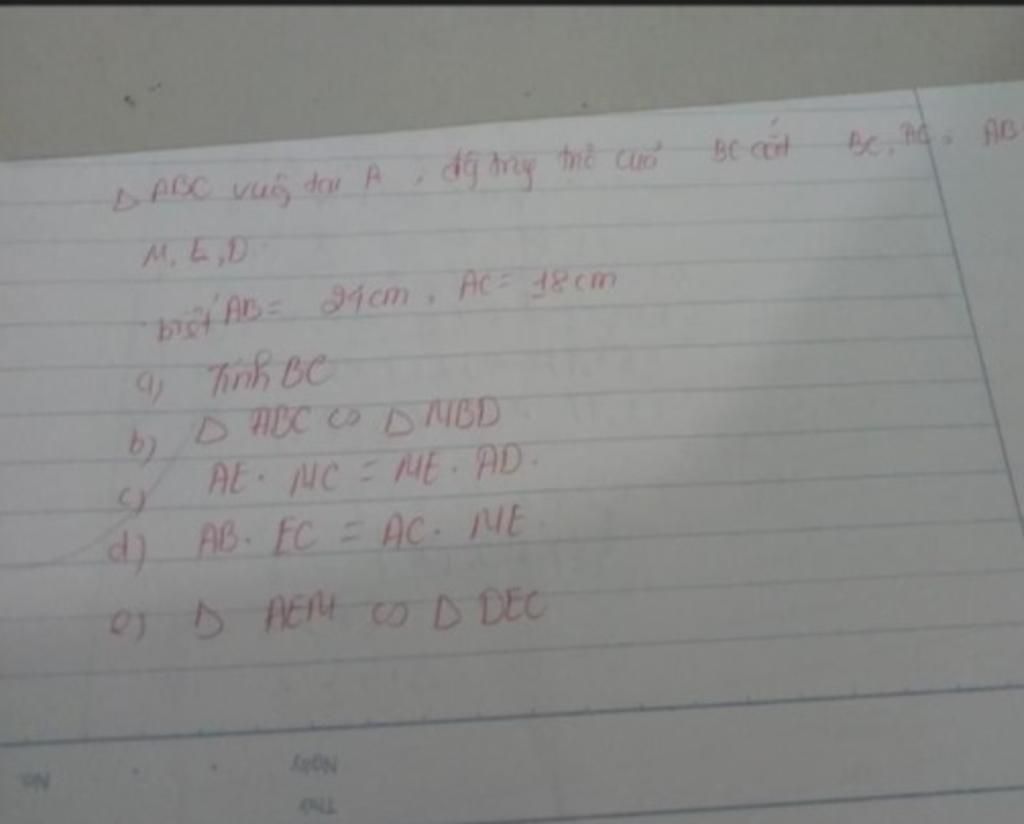 Δ ABC vuôg tại A, đg trug trực của BC cắt BC, AC, AB
M, E, D
biết AB = 24cm, AC = 18cm
a, Tính BC
b) Δ ABC ∽ Δ MBD
c) AE. MC = ME. AD.
d) AB. EC = AC. ME
e) Δ AEM ∽ Δ DEC
Ngày
No.
Thứ